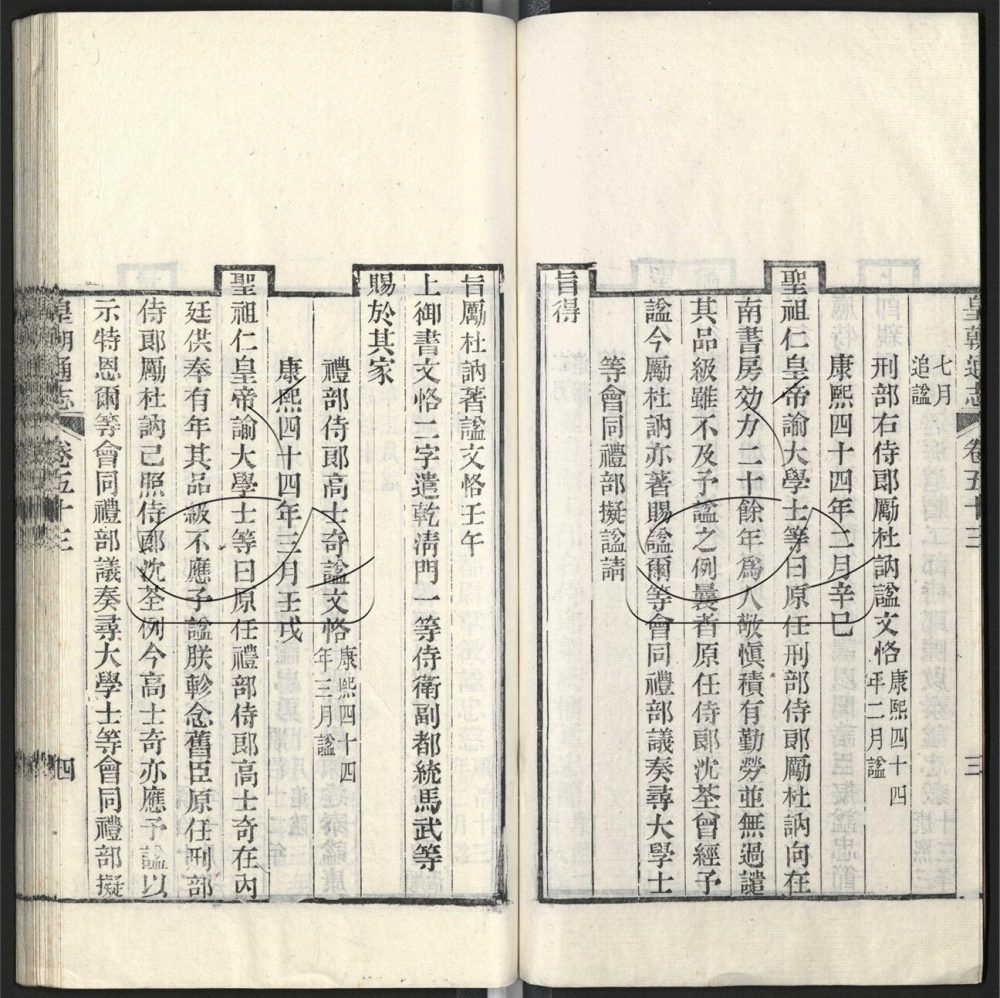 皇朝通志 卷五十三 三
七月
追諡
刑部右侍郎厲杜訥諡文恪康熙四十四
年二月諡
康熙四十四年二月辛巳
聖祖仁皇帝諭大學士等曰原任刑部侍郎厲杜訥向在
南書房効力二十餘年爲人敬慎積有勤勞並無過譴
其品級雖不及予諡之例曩者原任侍郎沈荃曾經予
諡今厲杜訥亦著賜諡爾等會同禮部議奏尋大學士
等會同禮部擬諡請
旨得
旨厲杜訥著諡文恪壬午
上御書文恪二字遣乾清門一等侍衛副都統馬武等
賜於其家
禮部侍郎高士奇諡文恪康熙四十四
年三月諡
康熙四十四年三月壬戌
聖祖仁皇帝諭大學士等曰原任禮部侍郎高士奇在內
廷供奉有年其品級不應予諡朕軫念舊臣原任刑部
侍郎厲杜訥已照侍郎沈荃例今高士奇亦應予諡以
示特恩爾等會同禮部議奏尋大學士等會同禮部擬
皇朝通志 卷五十三 四